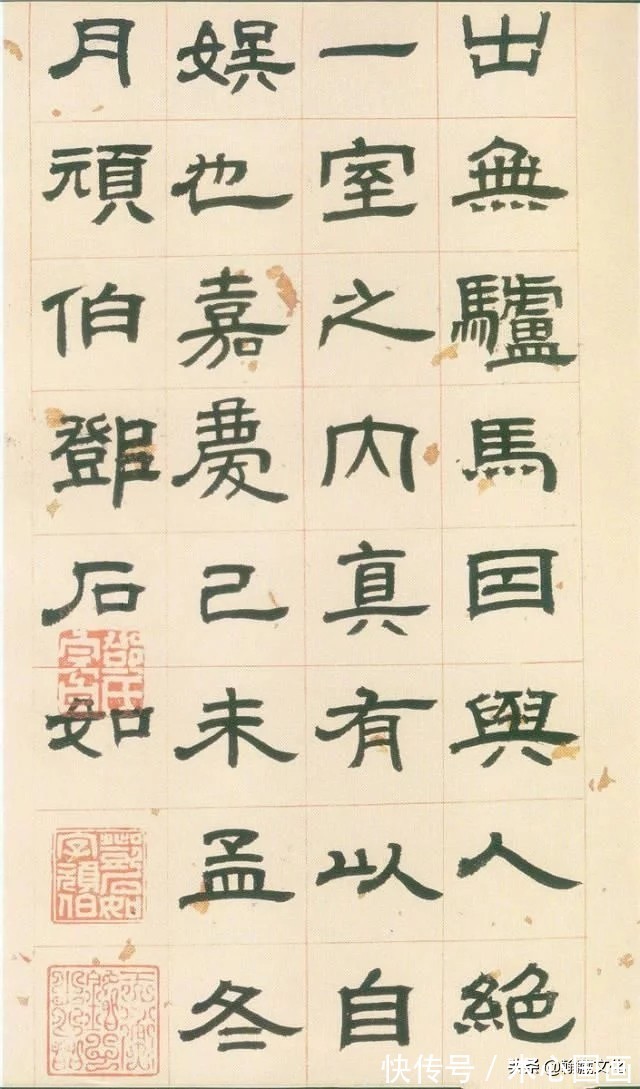 出無驢馬囙與人絕
一室之内真有以自
娛也嘉慶己未孟冬
月頑伯鄧石如
鄧石如
字頑伯
快传号 /